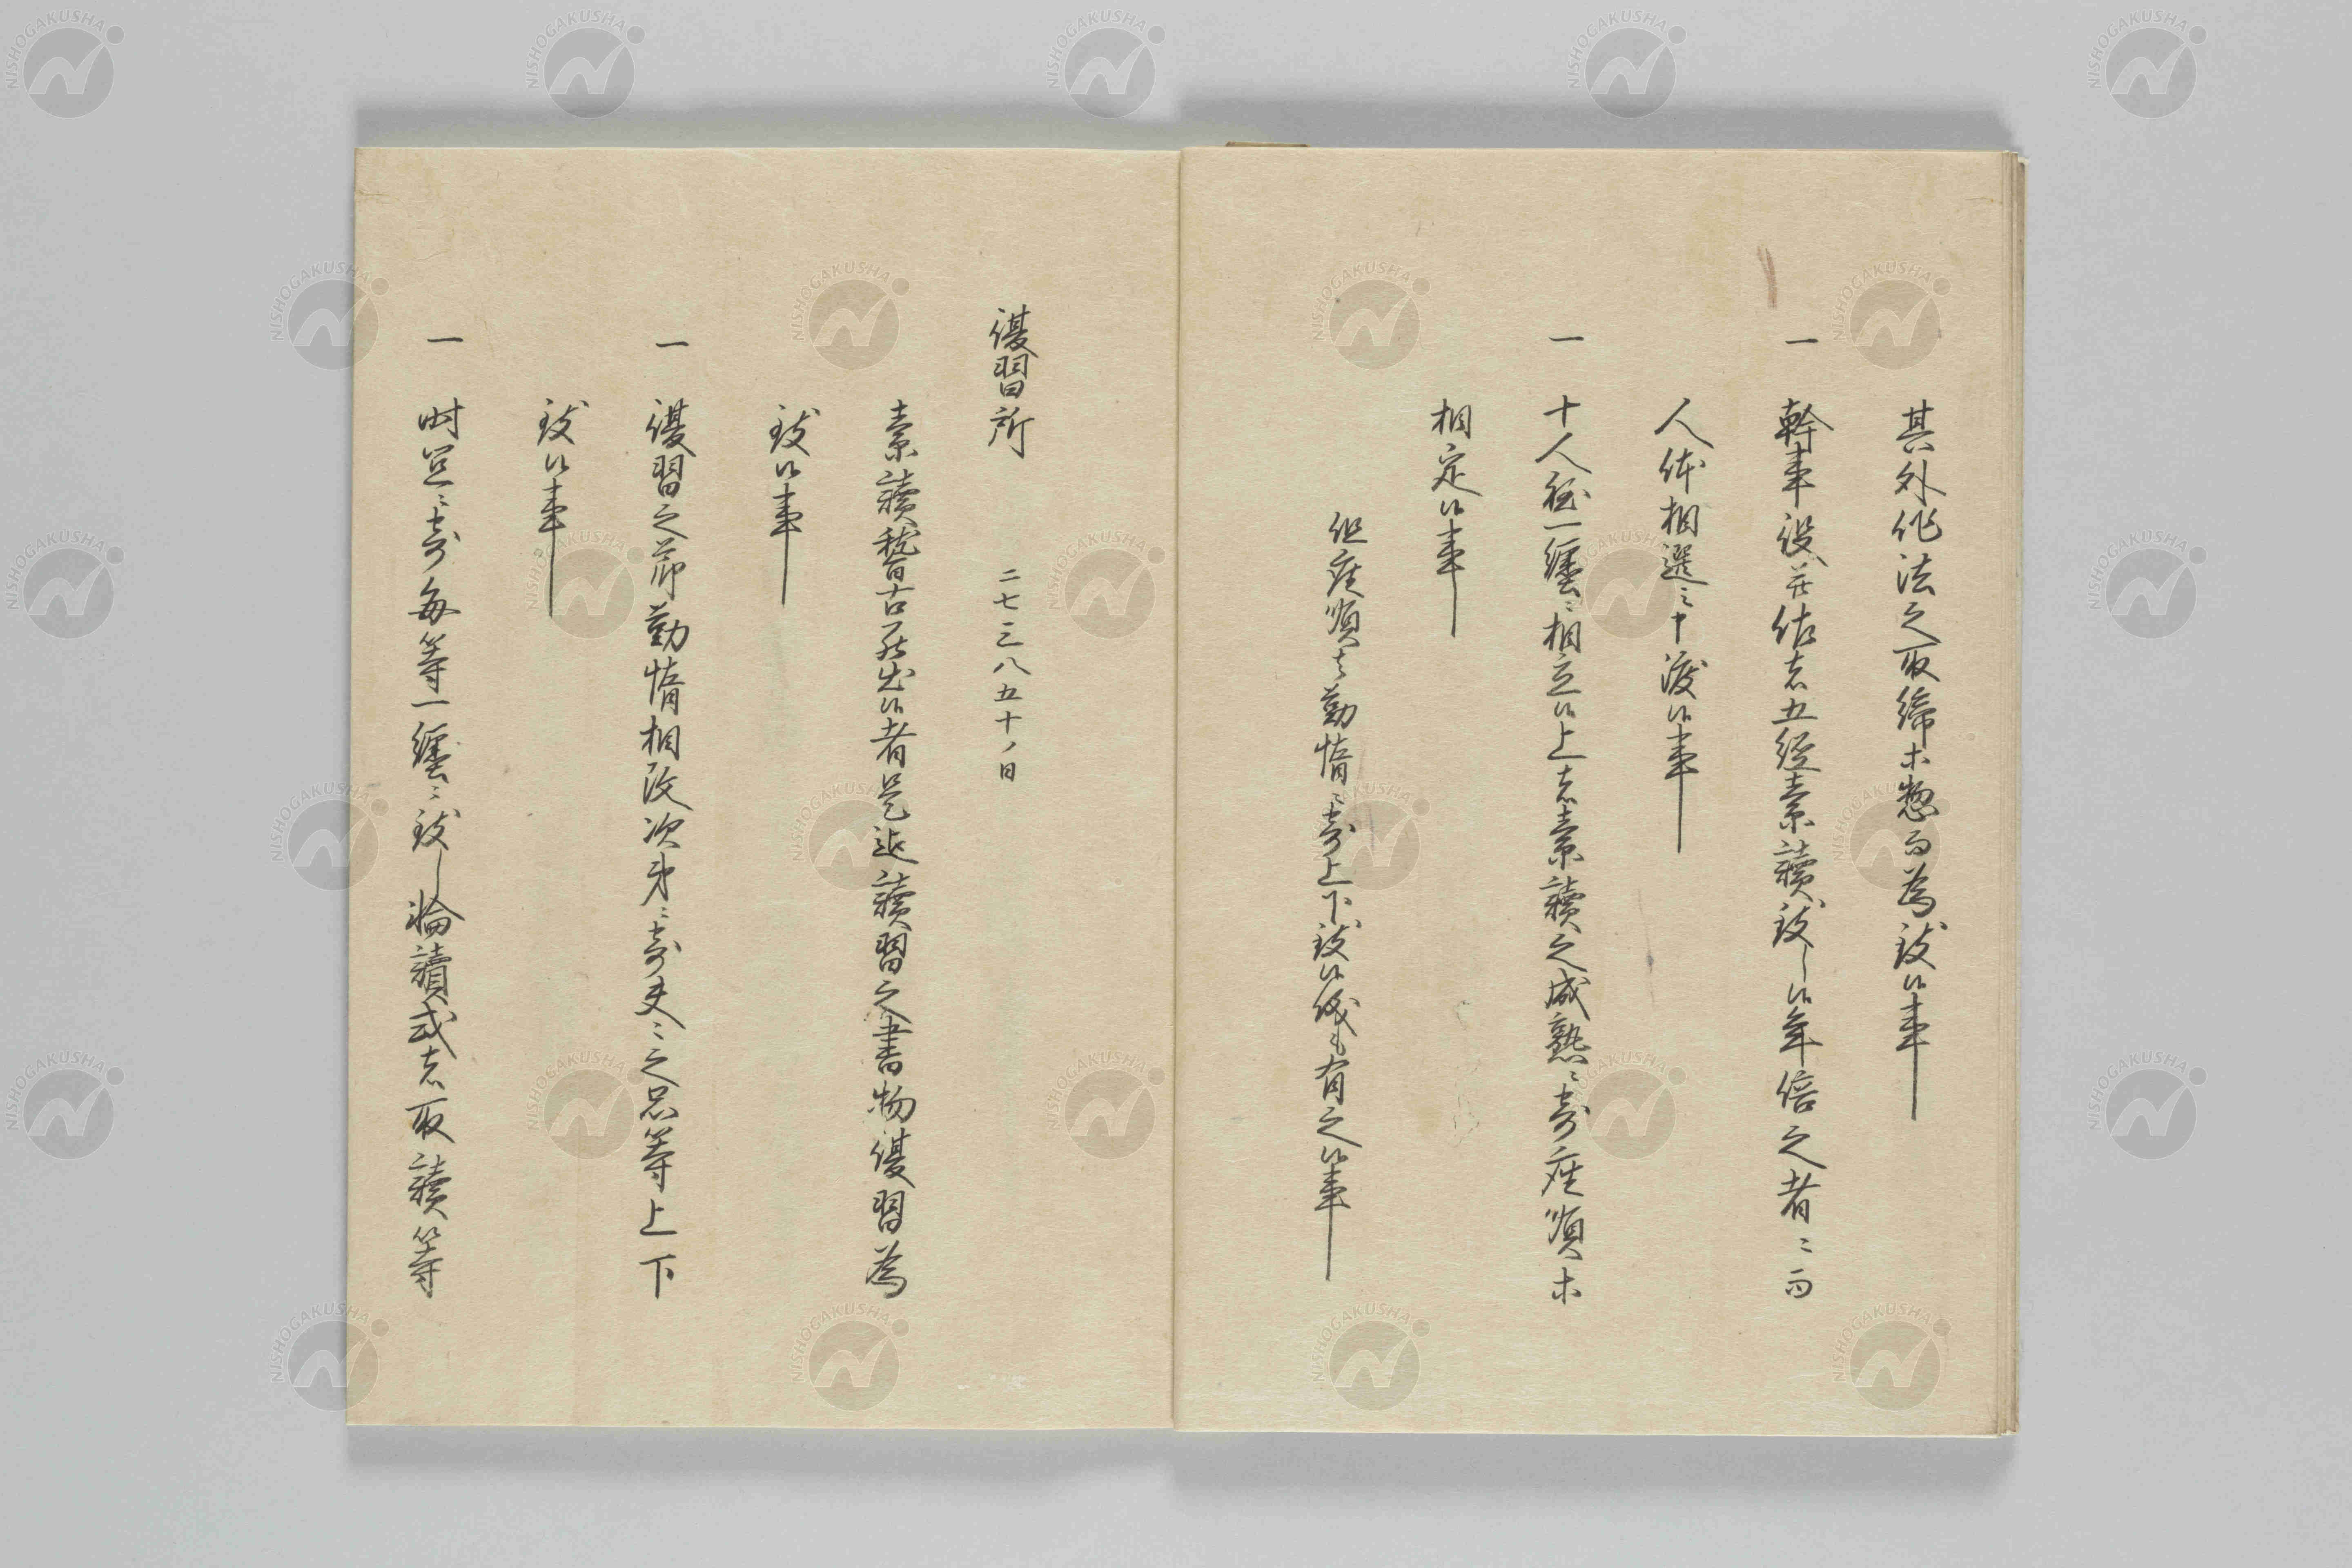 其外作法之取締木惣而為致候事
一 幹事設并佐者五経素讀致し候年倍之者ニ而
人体相選ミ十渡候事
一 十人程一纏ニ相立候上者素讀之成熟ニ寄座順木
相定候事
但座順与勤惰ニ寄上下致候儀も有之候事
復習所 二七三八五十ノ日
素讀稽古罷出候者是迄讀習之書物復習為
致候事
一 復習之節勤惰相改次第ニ寄夫々之呂等上下
致候事
一 時宜ニ寄毎等一纏ニ致し輪讀或者取讀等
NISHOGAKUSHA